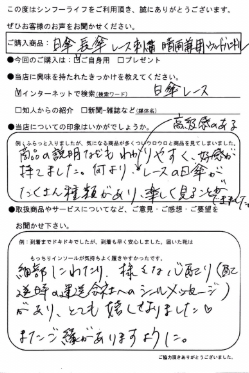 この度はシンフーライフをご利用頂き、誠にありがとうございます。
ぜひお客様のお声をお聞かせください。
ご購入商品: 日傘 長傘 レース刺繍 晴雨兼用
●今回のご購入は: ☑ご自身用 □プレゼント
●当店に興味を持たれたきっかけを教えてください。
☑インターネットで検索(検索ワード) 日傘レース
□知人からの紹介 □新聞・雑誌など(媒体名)
●当店についての印象はいかがでしょうか。 高級感のある
例:ふらっと入りましたが、気になる商品が多くついウロウロと商品を見てしまいました。
商品の説明などもわかりやすく、好感が
持てました。何よりレースの日傘が
たくさん種類があり、楽しく見ることが
できました。
●取扱商品やサービスについてなど、ご意見・ご感想・ご要望を
お聞かせ下さい。
例:到着までドキドキでしたが、到着も早く安心しました。届いた靴は
もっちりインソールが気持ちよく履きやすかったです。
細部にわたり、様々な心配り(配
送時の運送会社へのシールメッセージ)
があり、とても嬉しくなりました♡
またご縁がありますように。
ご協力頂きありがとうございました。